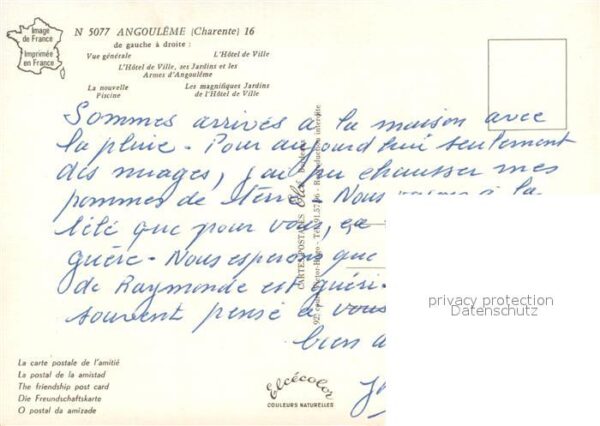 Image
de France
Imprimée
en France
N 5077 ANGOULÊME (Charente) 16
de gauche à droite :
Vue générale L'Hôtel de Ville
L'Hôtel de Ville, ses Jardins et les
Armes d'Angoulême
La nouvelle Les magnifiques Jardins
Piscine de l'Hôtel de Ville
Sommes arrivés à la maison avec
la pluie - Pour aujourd'hui seulement
des nuages, j'ai pu chausser mes
pommes de terre. Nous
l'été que pour vous,
guère - Nous esperons que
de Raymonde est
souvent pensé à vous
bien
CARTES POSTALES
Reproduction interdite
privacy protection
Datenschutz
La carte postale de l'amitié
La postal de la amistad
The friendship post card
Die Freundschaftskarte
O postal da amizade
Elcécolor
COULEURS NATURELLES